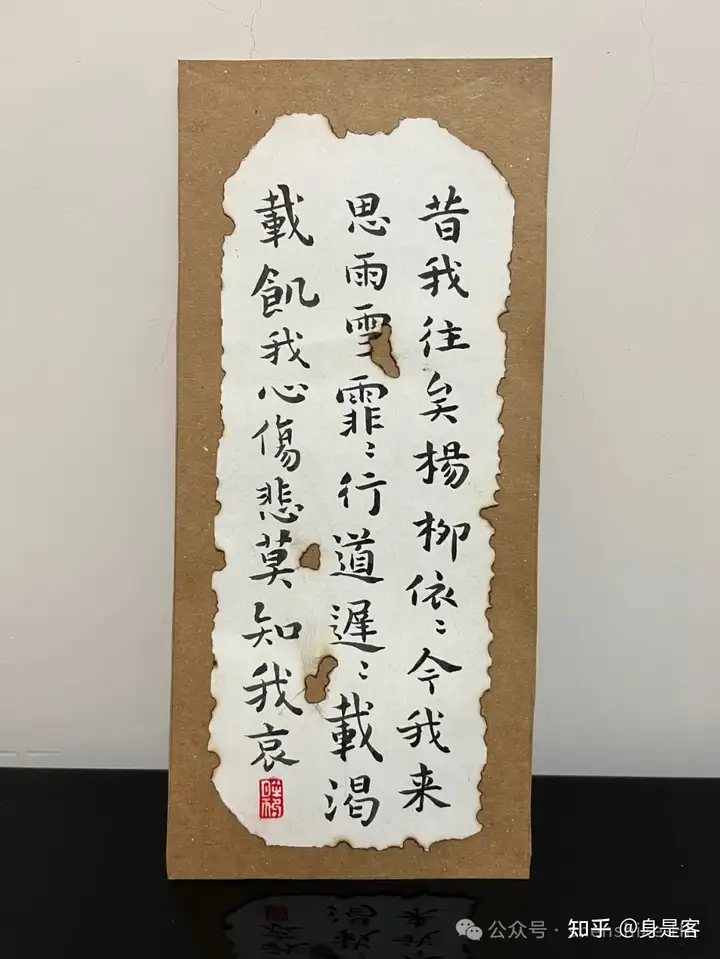 昔我往矣楊柳依〻今我来
思雨雪霏〻行道遲〻載渴
載飢我心傷悲莫知我哀
公众号·
知乎 @身是客